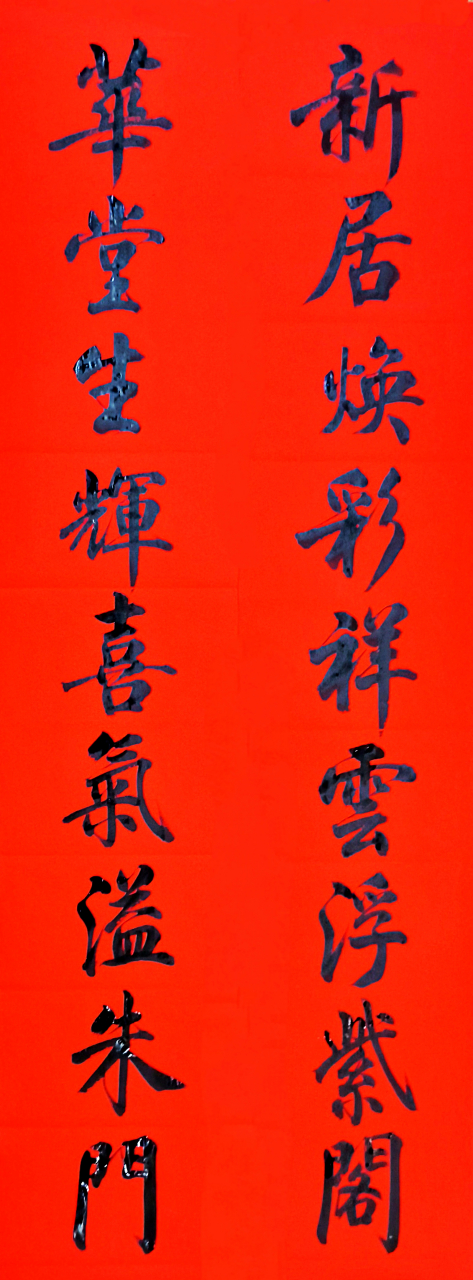 新居煥彩祥雲浮紫閣
華堂生輝喜氣溢朱門